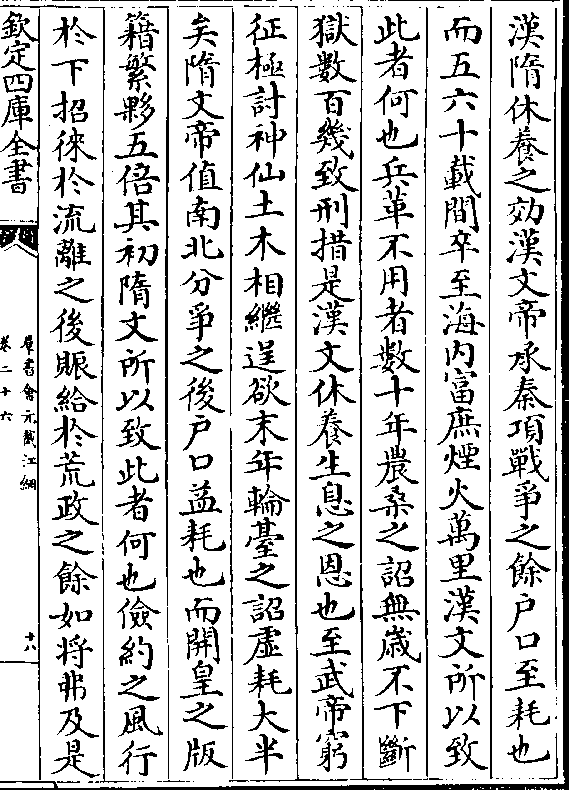 漢隋休養之効漢文帝承秦項戰爭之餘户口至耗也
而五六十載間卒至海内富庶煙火萬里漢文所以致
此者何也兵革不用者數十年農桑之詔無歳不下斷
獄數百幾致刑措是漢文休養生息之恩也至武帝窮
征極討神仙土木相繼逞欲末年輪臺之詔虚耗大半
矣隋文帝值南北分爭之後户口益耗也而開皇之版
籍繁夥五倍其初隋文所以致此者何也儉約之風行
於下招徠於流離之後賑給於荒政之餘如將弗及是
欽定四庫全書
羣書會元截江網
卷二十六
十八